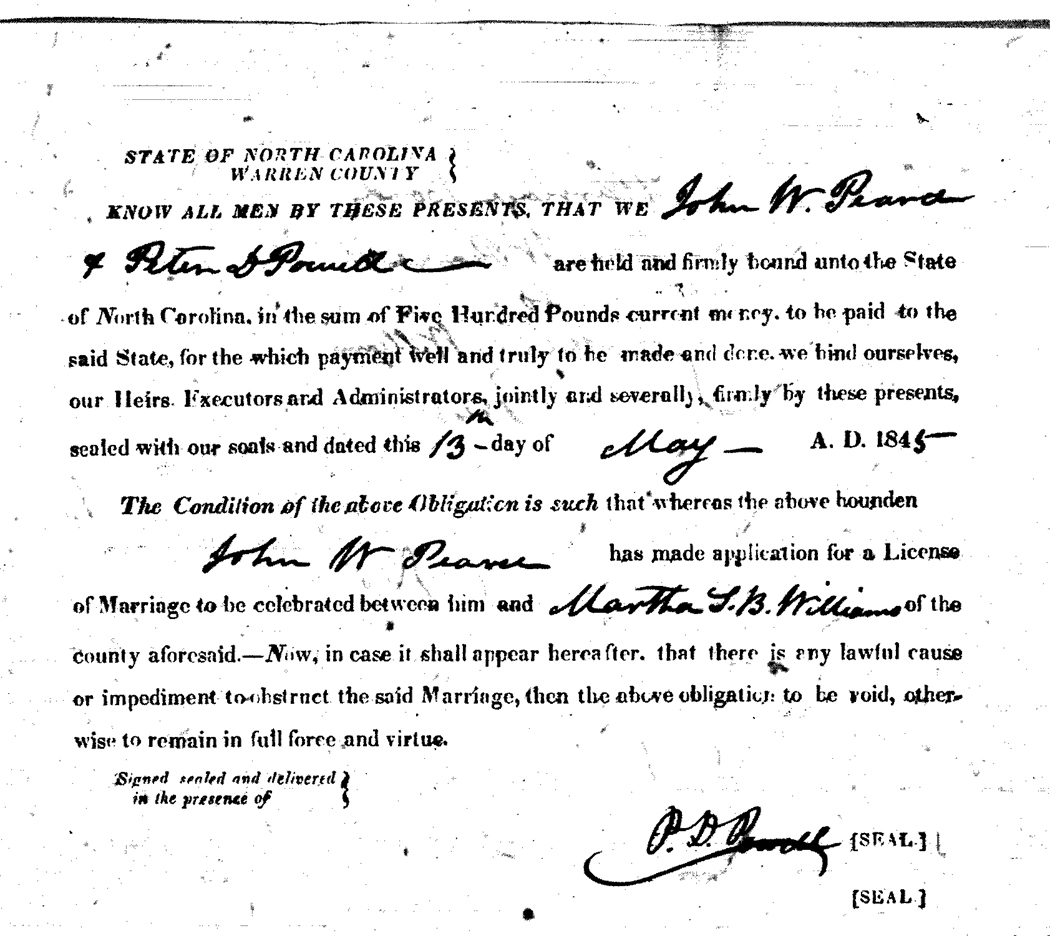 STATE OF NORTH CAROLINA
WARREN COUNTY
KNOW ALL MEN BY THESE PRESENTS, THAT WE John W. Pearce
& Peter D Powell are held and firmly bound unto the State
of North Carolina, in the sum of Five Hundred Pounds current money, to be paid to the
said State, for the which payment well and truly to be made and done, we bind ourselves,
our Heirs. Executors and Administrators, jointly and severally, firmly by these presents,
sealed with our seals and dated this 13th day of May A. D. 1845
The Condition of the above Obligation is such that whereas the above bounden
John W Pearce has made application for a License
of Marriage to be celebrated between him and Martha S. B. Williams of the
county aforesaid.—Now, in case it shall appear hereafter, that there is any lawful cause
or impediment to obstruct the said Marriage, then the above obligation to be void, other-
wise to remain in full force and virtue.
Signed sealed and delivered
in the presence of
P. D. Powell [SEAL.]
[SEAL.]